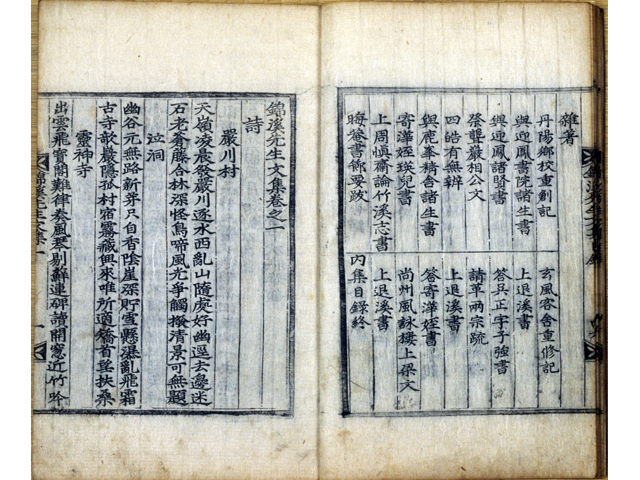 雜著
丹陽鄉校重創記 玄風客舍重修記
與迎鳳書院諸生書 上退溪書
與迎鳳諸賢書 答吳正字子強書
祭聾巖相公文 請革兩宗疏
四皓有無辨 上退溪書
與鹿峯精舍諸生書 答寄澕姪書
寄澕姪瑛兒書 尚州風詠樓上梁文
上周愼齋論竹溪志書 上退溪書
晦菴書節要跋 內集目錄終
錦溪先生文集卷之一
詩
嚴川村
天嶺凌晨發嚴川逐水西亂山隨處好幽逕去邊迷
石老蒼藤合林深怪鳥啼風光爭觸撥清景可無題
泣洞
幽谷元無路新芽只自香陰崖深貯雪懸瀑亂飛霜
古寺欹巖隱孤村宿霧藏興來唯所適矯首望扶桑
靈神寺
出雲飛寶閣離律奏風琴剔蘚連碑讀開窓近竹吟
錦溪先生文集一 一